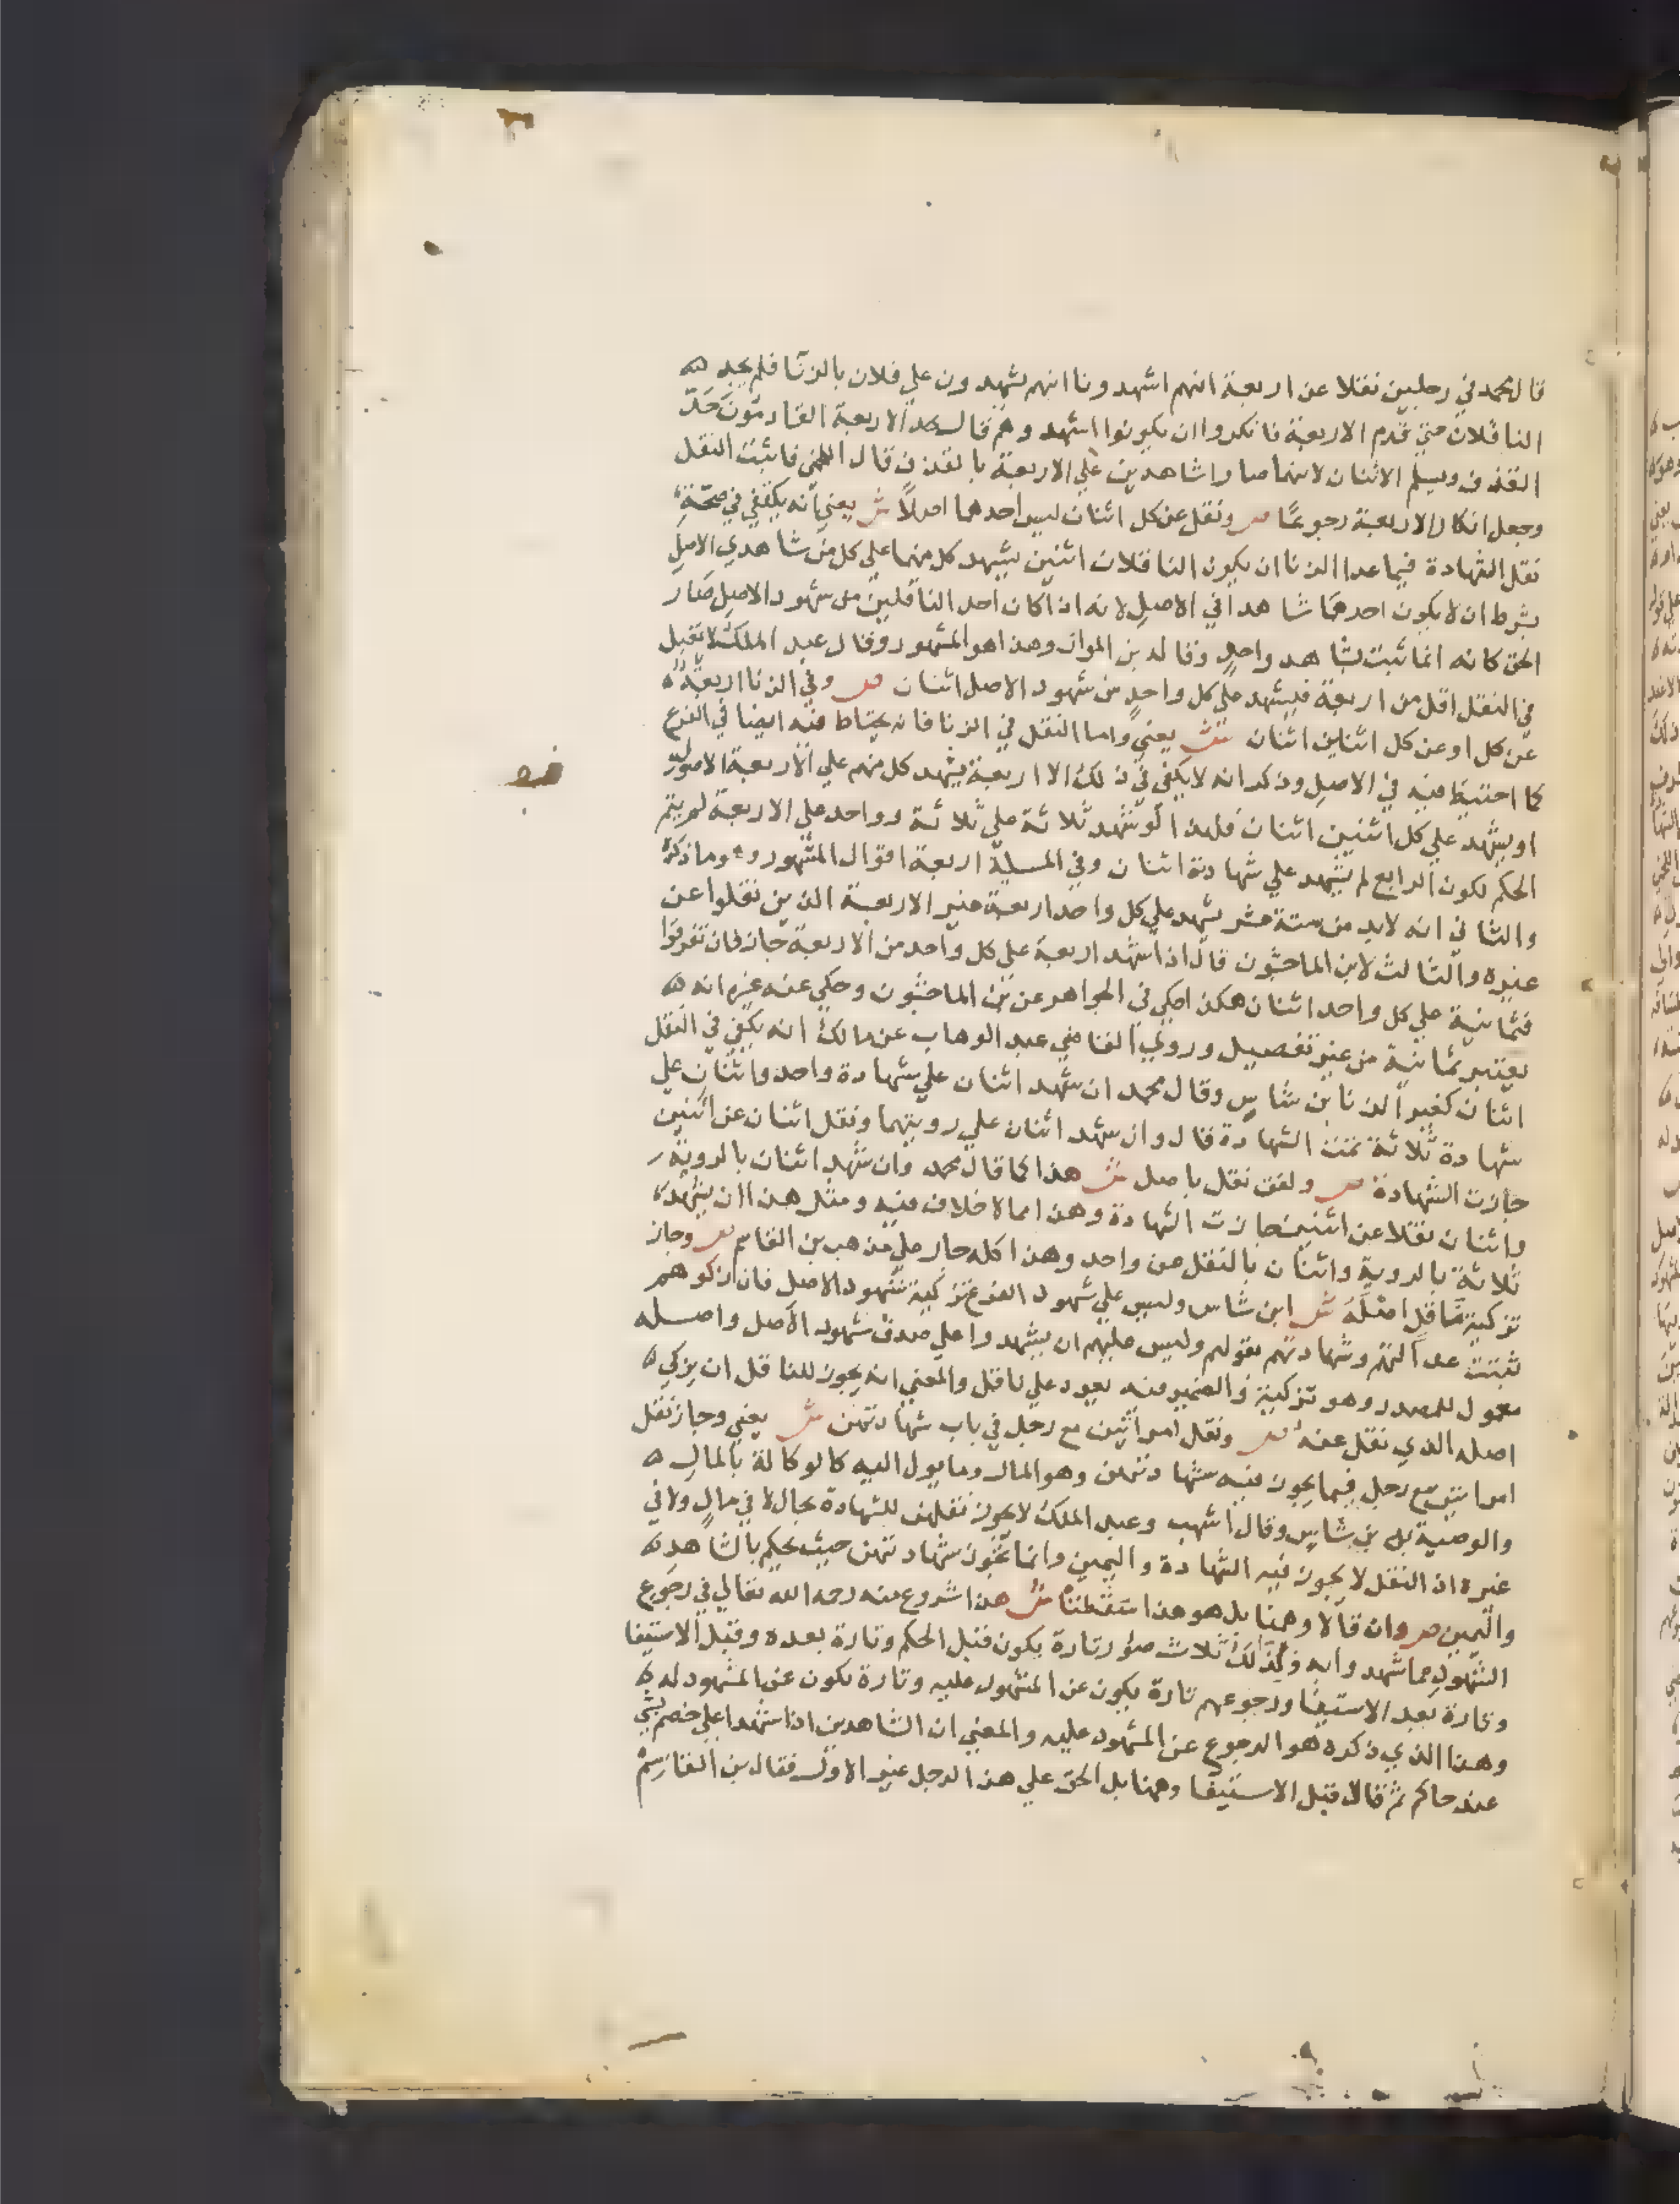 قال محمد في رجلين نقلا عن اربعة انهم اشهدونا انهم يشهدون علي فلان بالزنا فلم يحد
الناقلان حتي قدم الاربعة فانكروا ان يكونوا اشهدوهم قال يحد الاربعة القادمون حد
القذف ويسلم الاثنان لانهما صارا شاهدين علي الاربعة بالقذف قال اللخمي فاثبت النقل
وجعل انكار الاربعة رجوعا ص ونقل عن كل اثنان ليس احدهما اصلا ش يعني انه يكفي في صحة
نقل الشهادة فيما عدا الزنا ان يكون الناقلان اثنين يشهد كل منهما علي كل من شاهدي الاصل
بشرط ان لا يكون احدهما شاهدا في الاصل لانه اذا كان احد الناقلين من شهود الاصل صار
الحق كانه انما ثبت بشاهد واحد وقاله بن المواز وهذا هو المشهور وقال عبد الملك لا تقبل
في النقل اقل من اربعة فيشهد علي كل واحد من شهود الاصل اثنان ص وفي الزنا اربعة
عن كل او عن كل اثنين اثنان ش يعني واما النقل في الزنا فانه يحتاط فيه ايضا في الفرع
كما احتيط فيه في الاصل وذكر انه لا يكفي في ذلك الا اربعة يشهد كل منهم علي الاربعة الاصول
او يشهد علي كل اثنين اثنان فلهذا لو شهد ثلاثة علي ثلاثة وواحد علي الاربعة لم يتم
الحكم لكون الرابع لم يشهد علي شهادته اثنان وفي المسيلة اربعة اقوال المشهور وهو ما ذكره
والثاني انه لابد من ستة عشر يشهد علي كل واحد اربعة غير الاربعة الذين نقلوا عن
غيره والثالث لابن الماجشون قال اذا شهد اربعة علي كل واحد من الاربعة جاز فان تفرقوا
فثمانية علي كل واحد اثنان هكذا حكي في الجواهر عن بن الماجشون وحكي عنه غيره انه
يعتبر ثمانية من غير تفصيل وروي القاضي عبد الوهاب عن مالك انه يكفي في النقل
اثنان كغير الزنا بن شاس وقال محمد ان شهد اثنان علي شهادة واحد واثنان علي
شهادة ثلاثة تمت الشهادة قال وان شهد اثنان علي رويتهما ونقل اثنان عن اثنين
جازت الشهادة ص ولفق نقل باصل ش هذا كما قال محمد وان شهد اثنان بالروية
واثنان نقلا عن اثنين جازت الشهادة وهذا مما لا خلاف فيه ومثل هذا ان يشهد
ثلاثة بالروية واثنان بالنقل عن واحد وهذا كله جار علي مذهب بن القاسم ص وجاز
تزكية ناقل اصله ش ابن شاس وليس علي شهود الفرع تزكية شهود الاصل فان زكوهم
ثبتت عدالتهم وشهادتهم بقولهم وليس عليهم ان يشهدوا علي صدق شهود الاصل واصله
معمول للمصدر وهو تزكية والضمير فيه يعود علي ناقل والمعني انه يجوز للناقل ان يزكي
اصله الذي نقل عنه ص ونقل امراتين مع رجل في باب شهادتهن ش يعني وجاز نقل
امراتين مع رجل فيما يجوز فيه شهادتهن وهو المال وما يول اليه كالوكالة بالمال
والوصية به بن شاس وقال اشهب وعبد الملك لا يجوز نقلهن للشهادة بحال لا في مال ولا في
غيره اذ النقل لا يجوز فيه الشهادة واليمين وانما تجوز شهادتهن حيث يحكم بالشاهد
واليمين ص وان قالا وهمنا بل هو هذا سقطتا ش هذا شروع منه رحمه الله تعالي في رجوع
الشهود عما شهدوا به ولذلك ثلاث صور تارة يكون قبل الحكم وتارة بعده وقبل الاستيفا
وتارة بعد الاستيفا ورجوعهم تارة يكون عن المشهود عليه وتارة يكون عن المشهود له
وهذا الذي ذكره هو الرجوع عن المشهود عليه والمعني ان الشاهدين اذا شهدا علي خصم بشي
عند حاكم ثم قالا قبل الاستيفا وهمنا بل الحق علي هذا الرجل غير الاول فقال بن القاسم